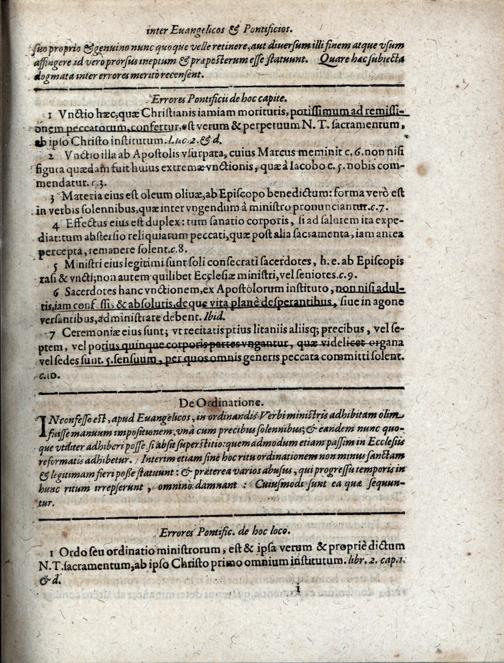 inter Euangelicos & Pontificios.
suo proprio & genuino nunc quoque velle retinere, aut diuersum illi finem atque vsum
affingere id vero prorsus ineptum & præposterum esse statuunt. Quare hæc subiecta
dogmata inter errores merito recensent.
Errores Pontificii de hoc capite.
1 Vnctio hæc, quæ Christianis iamiam morituris, potissimum ad remissi-
onem peccatorum, confertur, est verum & perpetuum N. T. sacramentum,
ab ipso Christo institutum. l. uc. 2. & d.
2 Vnctio illa ab Apostolis vsurpata, cuius Marcus meminit c. 6. non nisi
figura quædam fuit huius extremæ vnctionis, quæ à Iacobo c. 5. nobis com-
mendatur. c. 3.
3 Materia eius est oleum oliuæ, ab Episcopo benedictum: forma verò est
in verbis solennibus, quæ inter vngendum à ministro pronunciantur. c. 7.
4 Effectus eius est duplex: tum sanatio corporis, si ad salutem ita expe-
diat: tum abstersio reliquiarum peccati, quæ post alia sacramenta, iam antea
percepta, remanere solent. c. 8.
5 Ministri eius legitimi sunt soli consecrati sacerdotes, h. e. ab Episcopis
rasi & vncti; non autem quilibet Ecclesiæ ministri, vel seniores. c. 9.
6 Sacerdotes hanc vnctionem, ex Apostolorum instituto, non nisi adul-
tis, iam conf ssis & absolutis, deque vita planè desperantibus, siue in agone
versantibus, administrare debent. Ibid.
7 Ceremoniæ eius sunt; vt recitatis prius litaniis aliisq; precibus, vel se-
ptem, vel potius quinque corporis partes vngantur, quæ videlicet organa
vel sedes sunt. 5. sensuum, per quos omnis generis peccata committi solent.
c. 10.
De Ordinatione.
IN confesso est, apud Euangelicos, in ordinandis Verbi ministris adhibitam olim
fuisse manuum impositionem, vnà cum precibus solennibus; & eandem nunc quo-
que vtiliter adhiberi posse, si absit superstitio: quemadmodum etiam passim in Ecclesiis
reformatis adhibetur. Interim etiam sine hoc ritu ordinationem non minus sanctam
& legitimam fieri posse statuunt: & præterea varios abusus, qui progressu temporis in
hunc ritum irrepserunt, omnino damnant: Cuiusmodi sunt ea quæ sequun-
tur.
Errores Pontific. de hoc loco.
1 Ordo seu ordinatio ministrorum, est & ipsa verum & propriè dictum
N. T. sacramentum, ab ipso Christo primo omnium institutum. libr. 2. cap. 1.
& d.
i